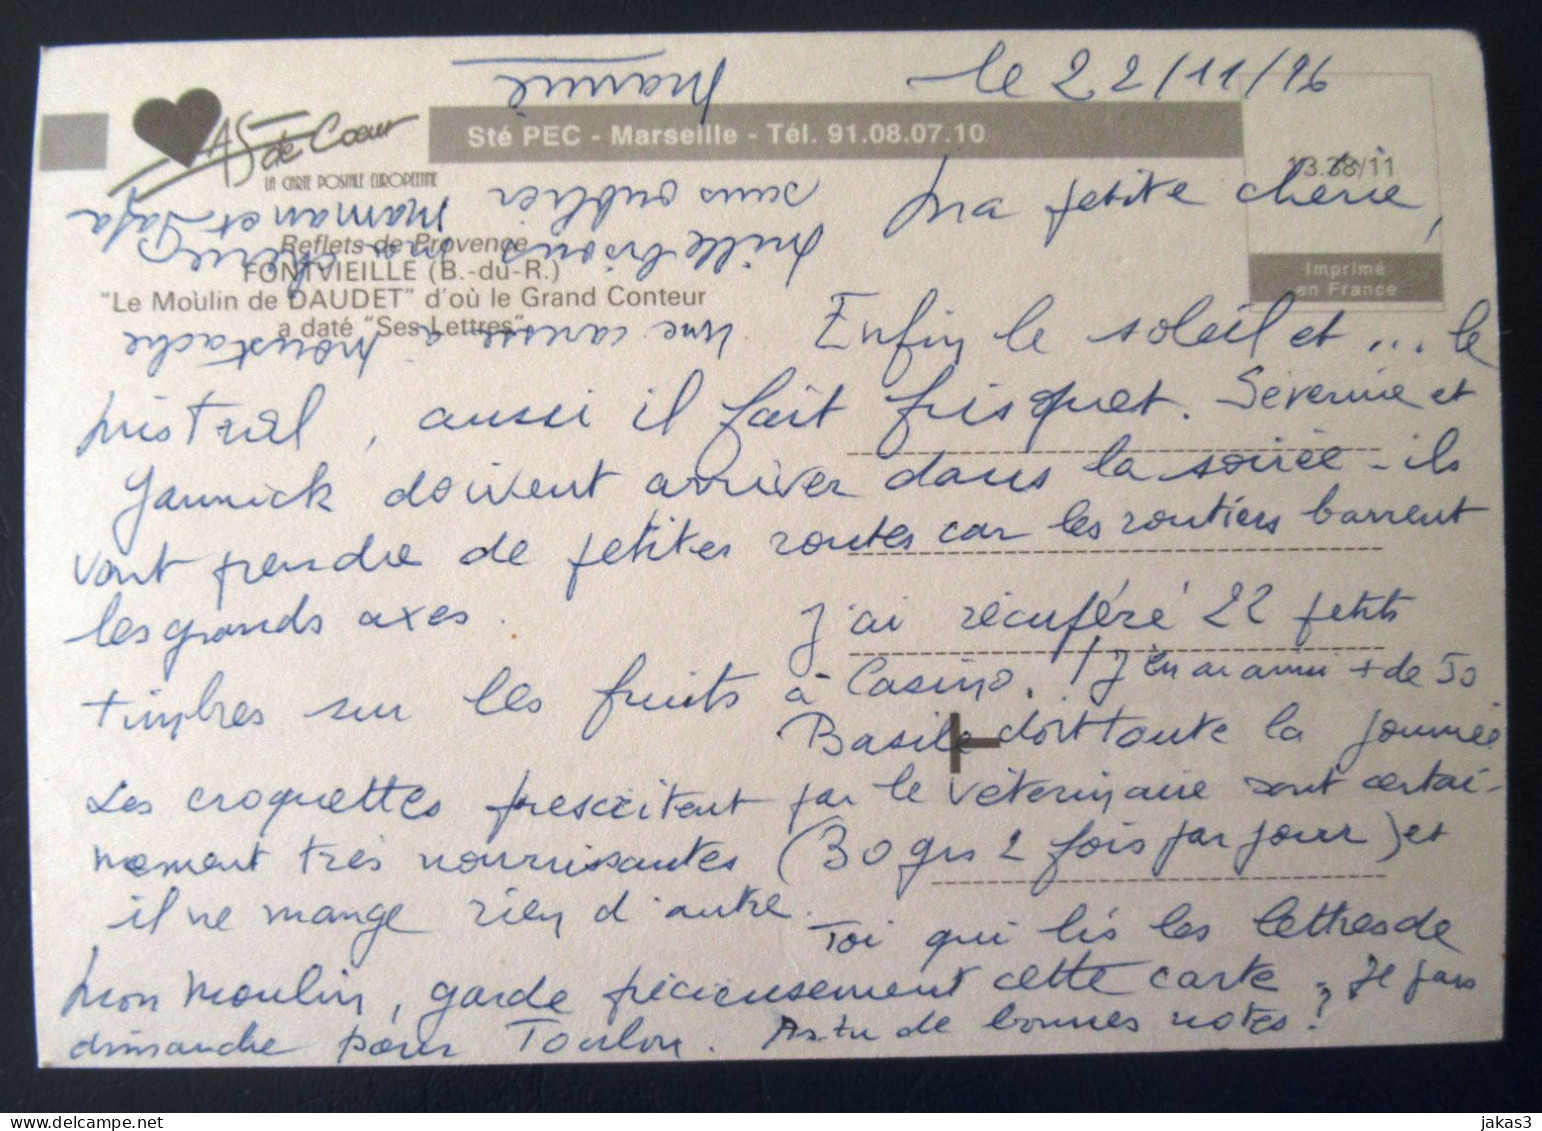 le 22/11/96
AS de Cœur
LA CARTE POSTALE EUROPEENNE
Sté PEC - Marseille - Tél. 91.08.07.10
13.38/11
Imprimé
en France
Reflets de Provence
FONTVIEILLE (B.-du-R.)
"Le Moulin de DAUDET" d'où le Grand Conteur
a daté "Ses Lettres"
Ma petite chérie,
Enfin le soleil et ... le
mistral, aussi il fait frisquet. Séverine et
Yannick doivent arriver dans la soirée - ils
vont prendre de petites routes car les routiers barrent
les grands axes. J'ai récupéré 22 petits
timbres sur les fruits à Casino. ! J'en ai ainsi + de 50
Basile dort toute la journée
Les croquettes prescritent par le vétérinaire sont certai-
nement très nourrissantes (30 grs 2 fois par jour) et
il ne mange rien d'autre. Toi qui lis les lettres de
mon moulin, garde précieusement cette carte. Je pars
dimanche pour Toulon. As-tu de bonnes notes ?
Une caresse à Moustache
Mille bisous ma chérie
sans oublier Maman et Papa
Mamie
jakas3